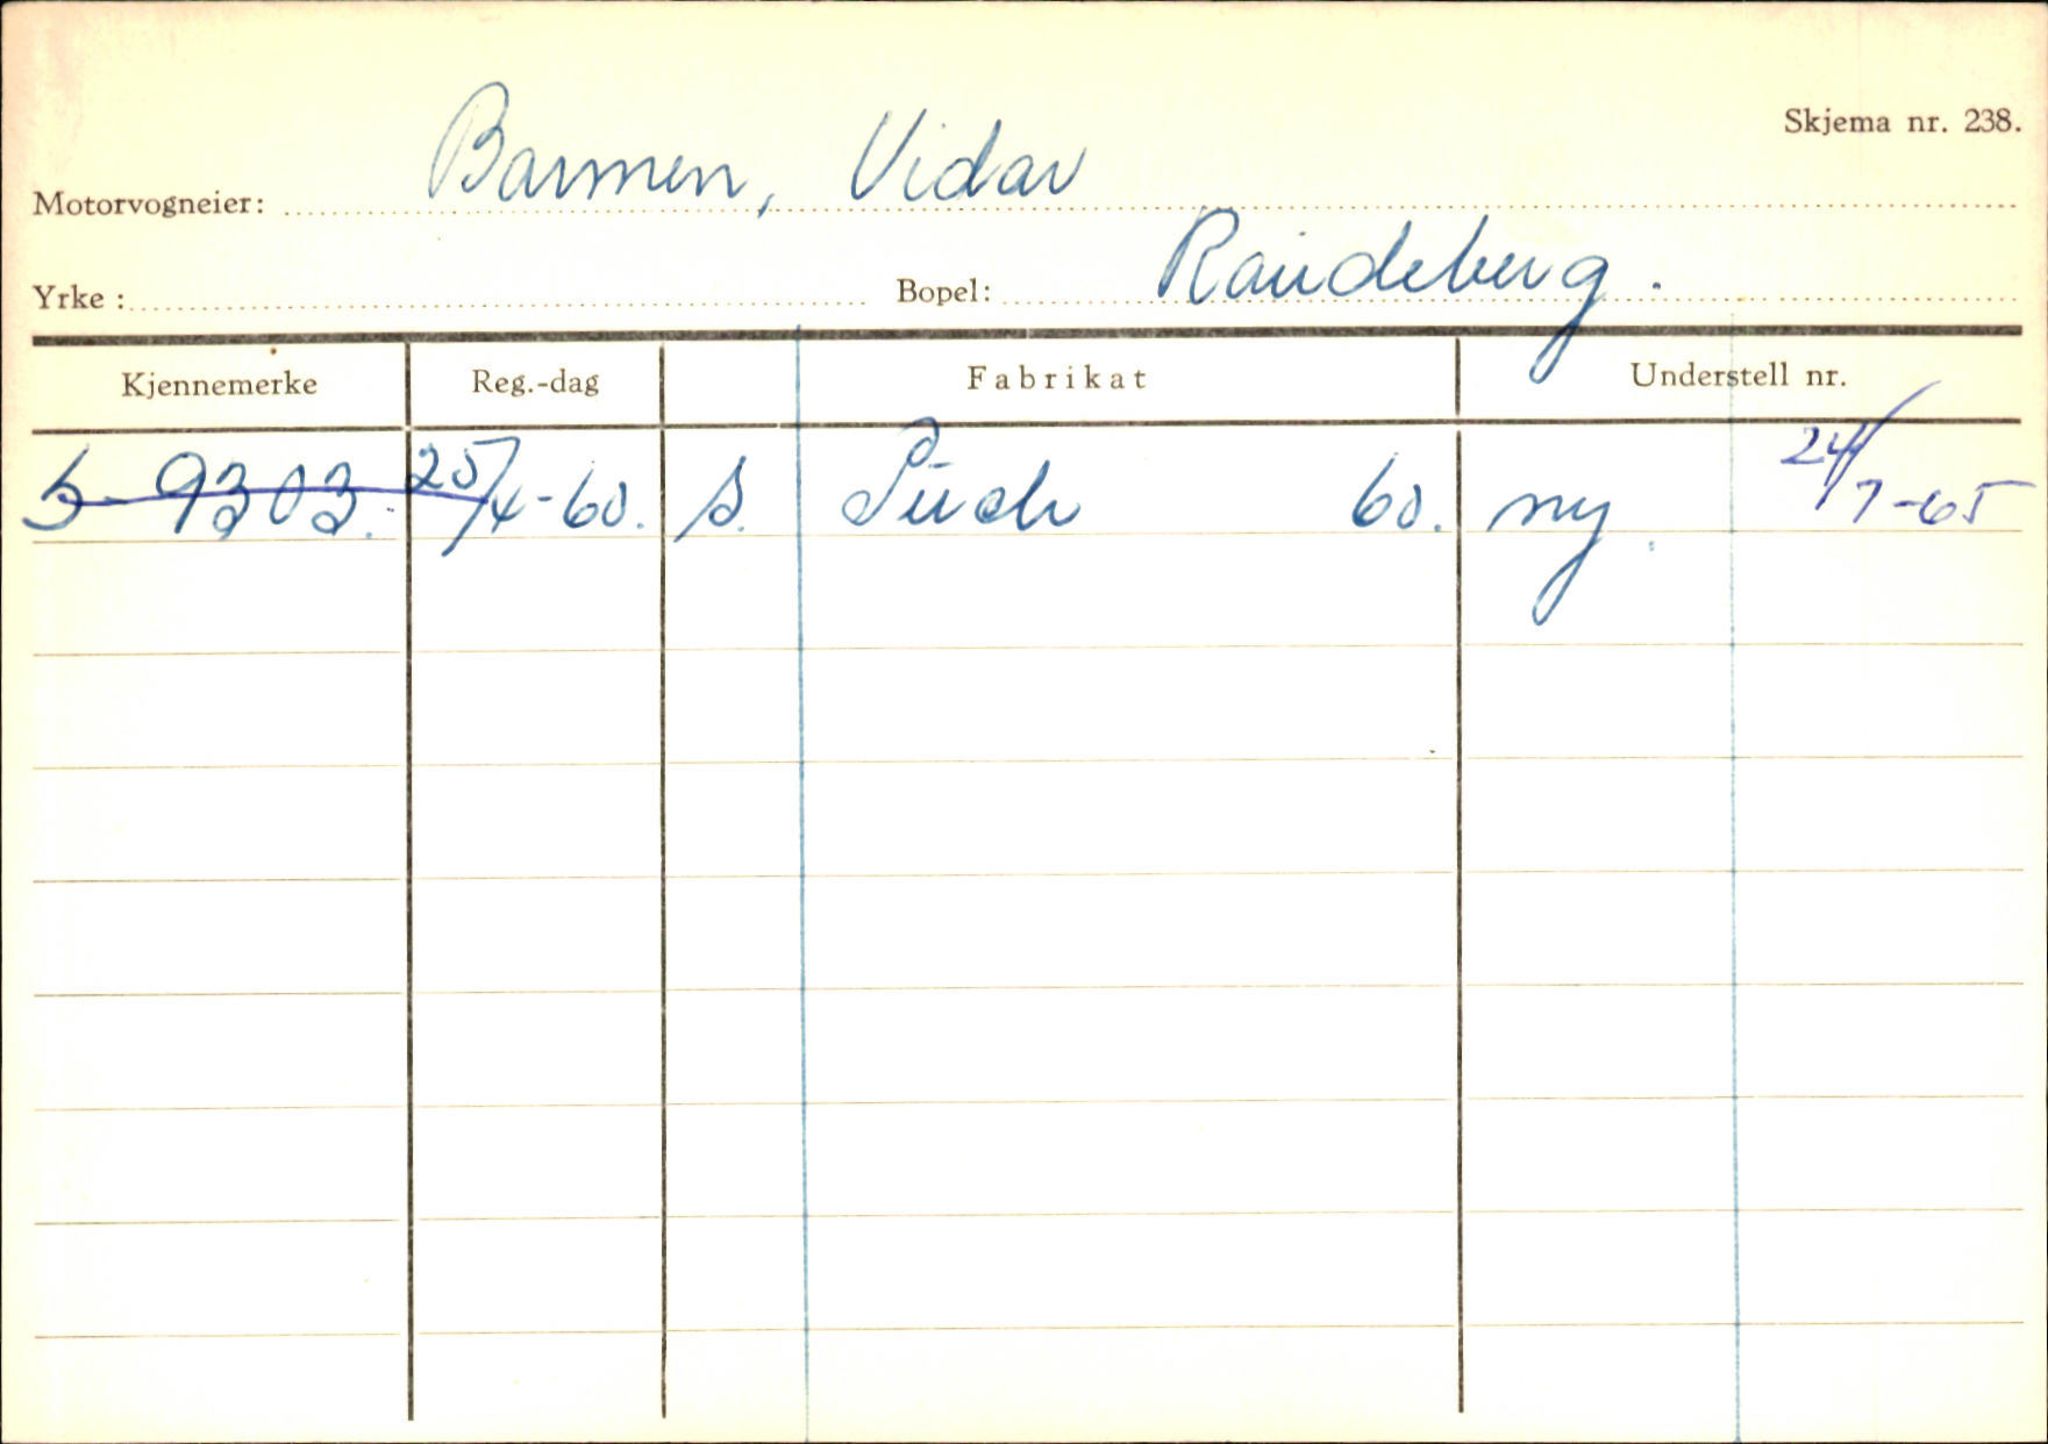 Skjema nr. 238.
Motorvogneier: Barmen, Vidar
Yrke: Bopel: Raudeberg.
Kjennemerke Reg.-dag Fabrikat Understell nr.
S-9303. 25/4-60. s. Puch 60. ny. 24/7-65